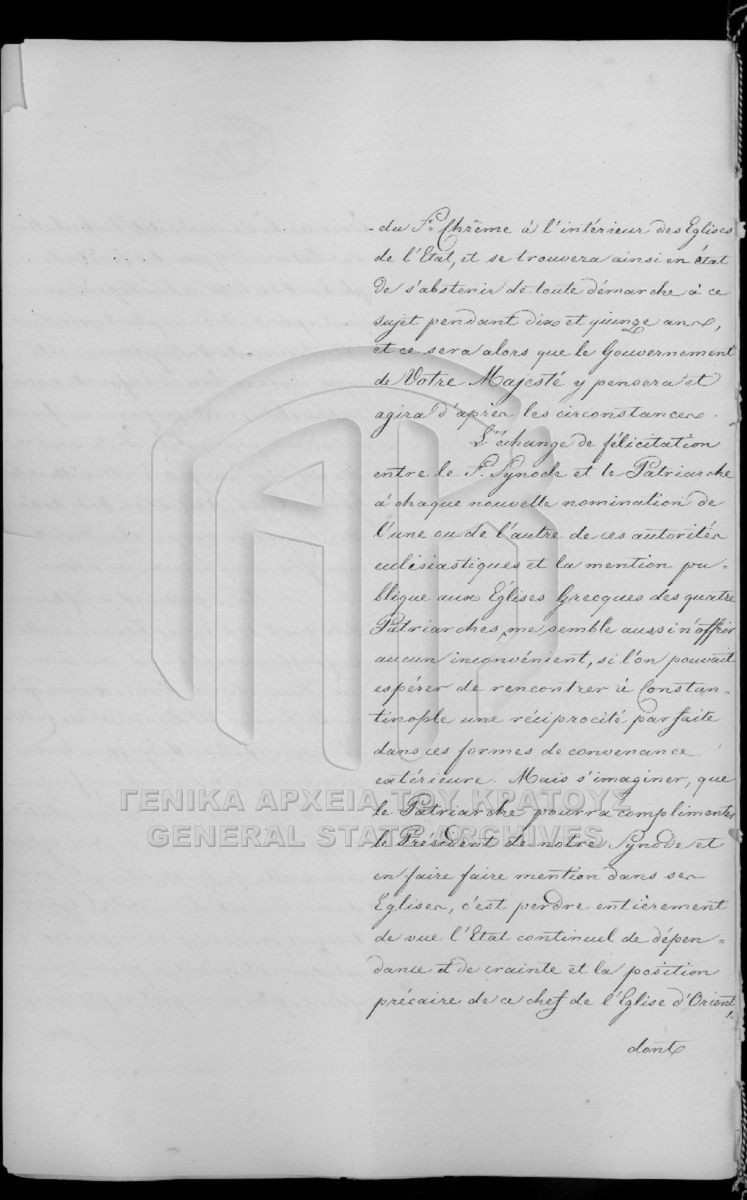 du St Chrême à l'intérieur des Eglises
de l'Etat, et se trouvera ainsi en état
de s'abstenir de toute démarche à ce
sujet pendant dix et quinze ans,
et ce sera alors que le Gouvernement
de Votre Majesté y pensera et
agira d'après les circonstances.
L'échange de félicitation
entre le St. Synode et le Patriarche
à chaque nouvelle nomination de
l'une ou de l'autre de ces autorités
eclésiastiques et la mention pu-
blique aux Eglises Grecques des quatre
Patriarches, me semble aussi n'offrir
aucun inconvénient, si l'on pouvait
espérer de rencontrer à Constan-
tinople une réciprocité parfaite
dans ces formes de convenance
extérieure. Mais s'imaginer, que
le Patriarche pourra complimenter
le Président de notre Synode et
en faire faire mention dans ses
Eglises, c'est perdre entièrement
de vue l'Etat continuel de dépen-
dance et de crainte et la position
précaire de ce chef de l'Eglise d'Orient,
dont
ΓΕΝΙΚΑ ΑΡΧΕΙΑ ΤΟΥ ΚΡΑΤΟΥΣ
GENERAL STATE ARCHIVES